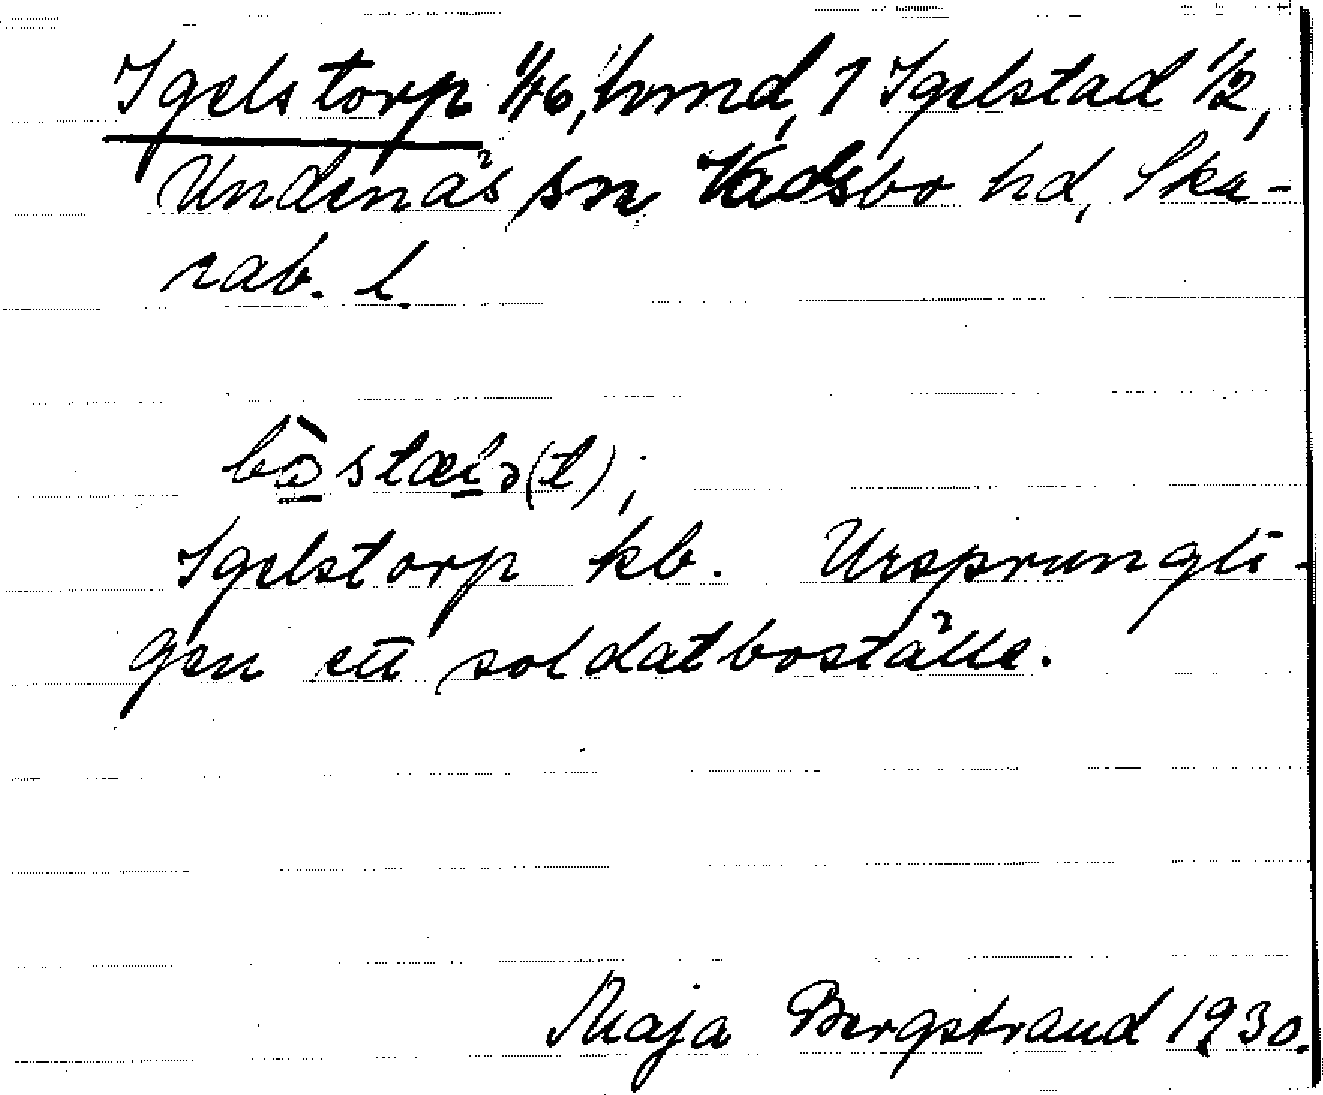 Igelstorp 1/16, hmd, 1 Igelstad 1/2,
Undenäs sn Vadsbo hd, Ska-
rab. l.
Igelstorp kb. Ursprungli-
gen ett soldatboställe.
Maja Bergstrand 1930.